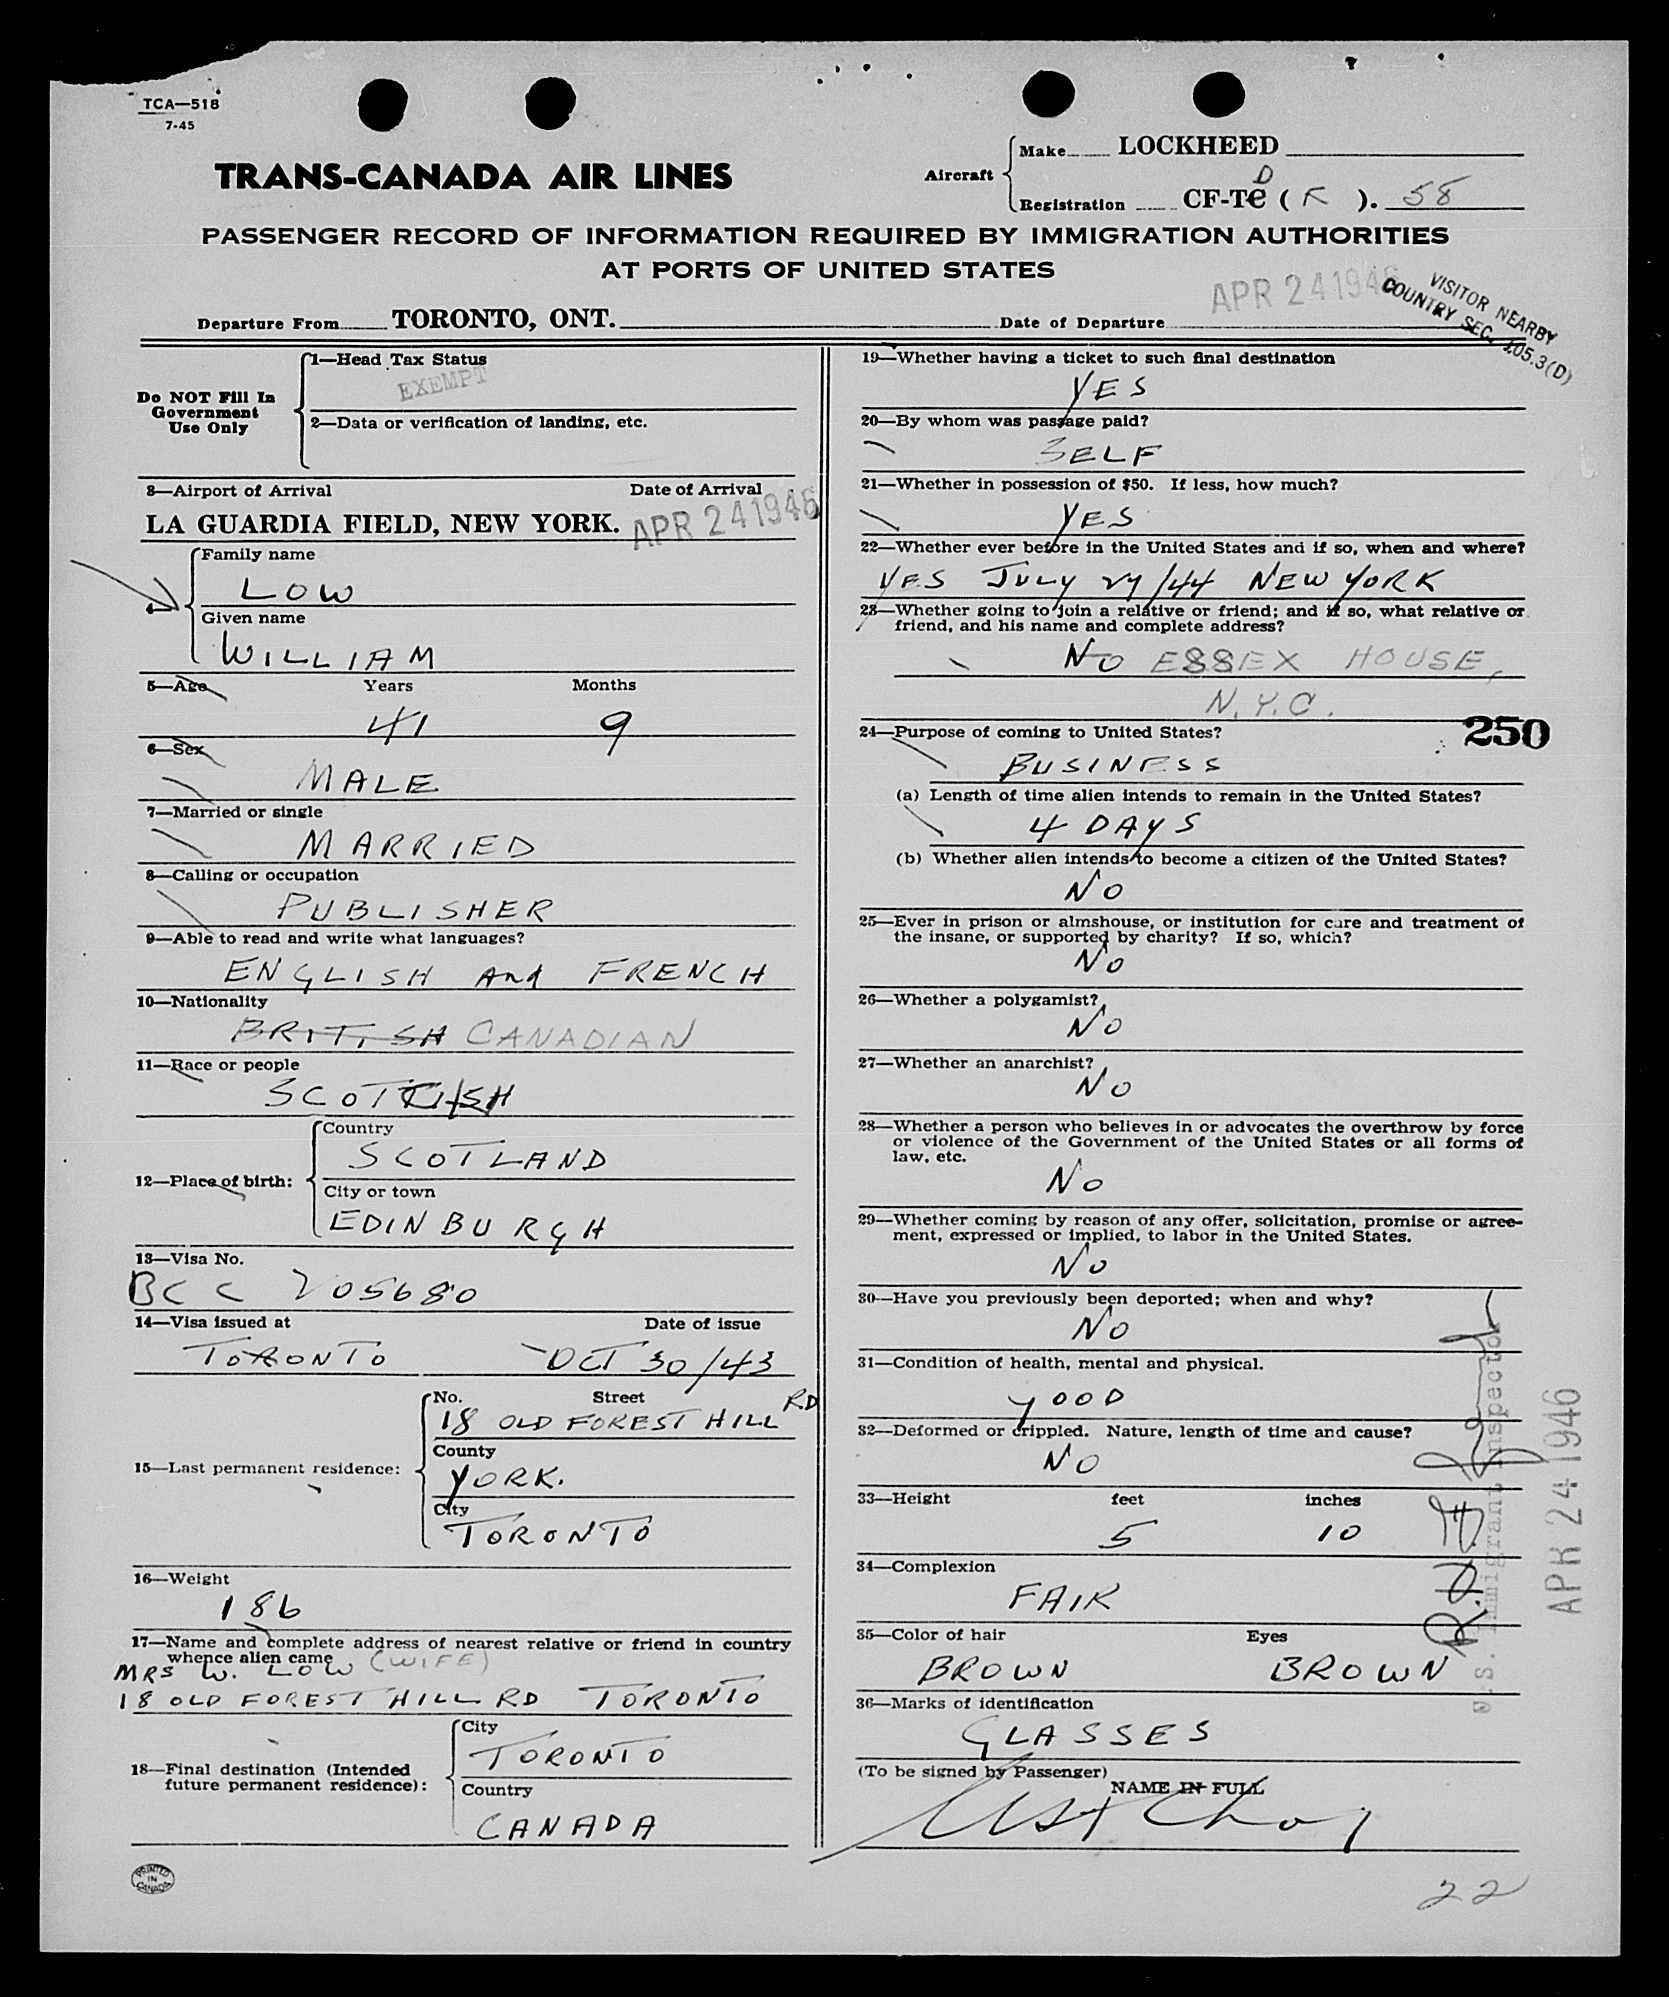 TCA—518
7-45
TRANS-CANADA AIR LINES
Aircraft
Make LOCKHEED
Registration CF-TCD ( K ). 58
PASSENGER RECORD OF INFORMATION REQUIRED BY IMMIGRATION AUTHORITIES
AT PORTS OF UNITED STATES
Departure From TORONTO, ONT. Date of Departure APR 24 1946
VISITOR NEARBY
COUNTRY SEC. 105.3(D)
Do NOT Fill In
Government
Use Only
1—Head Tax Status
EXEMPT
2—Data or verification of landing, etc.
3—Airport of Arrival Date of Arrival
LA GUARDIA FIELD, NEW YORK. APR 24 1946
4—
Family name
LOW
Given name
WILLIAM
5—Age Years Months
41 9
6—Sex
MALE
7—Married or single
MARRIED
8—Calling or occupation
PUBLISHER
9—Able to read and write what languages?
ENGLISH And FRENCH
10—Nationality
BRITISH CANADIAN
11—Race or people
SCOTTISH
12—Place of birth:
Country
SCOTLAND
City or town
EDINBURGH
13—Visa No.
BCC 205680
14—Visa issued at Date of issue
TORONTO OCT 30/43
15—Last permanent residence:
No. Street
18 OLD FOREST HILL RD
County
YORK.
City
TORONTO
16—Weight
186
17—Name and complete address of nearest relative or friend in country
whence alien came
MRS W. LOW (WIFE)
18 OLD FOREST HILL RD TORONTO
18—Final destination (Intended
future permanent residence):
City
TORONTO
Country
CANADA
PRINTED
IN
CANADA
19—Whether having a ticket to such final destination
YES
20—By whom was passage paid?
SELF
21—Whether in possession of $50. If less, how much?
YES
22—Whether ever before in the United States and if so, when and where?
YES JULY 27/44 NEW YORK
23—Whether going to join a relative or friend; and if so, what relative or
friend, and his name and complete address?
NO ESSEX HOUSE,
N.Y.C.
250
24—Purpose of coming to United States?
BUSINESS
(a) Length of time alien intends to remain in the United States?
4 DAYS
(b) Whether alien intends to become a citizen of the United States?
NO
25—Ever in prison or almshouse, or institution for care and treatment of
the insane, or supported by charity? If so, which?
NO
26—Whether a polygamist?
NO
27—Whether an anarchist?
NO
28—Whether a person who believes in or advocates the overthrow by force
or violence of the Government of the United States or all forms of
law, etc.
NO
29—Whether coming by reason of any offer, solicitation, promise or agree-
ment, expressed or implied, to labor in the United States.
NO
30—Have you previously been deported; when and why?
NO
31—Condition of health, mental and physical.
GOOD
32—Deformed or crippled. Nature, length of time and cause?
NO
33—Height feet inches
5 10
34—Complexion
FAIR
35—Color of hair Eyes
BROWN BROWN
36—Marks of identification
GLASSES
(To be signed by Passenger)
NAME IN FULL
U.S. Immigrant Inspector
APR 24 1946
22